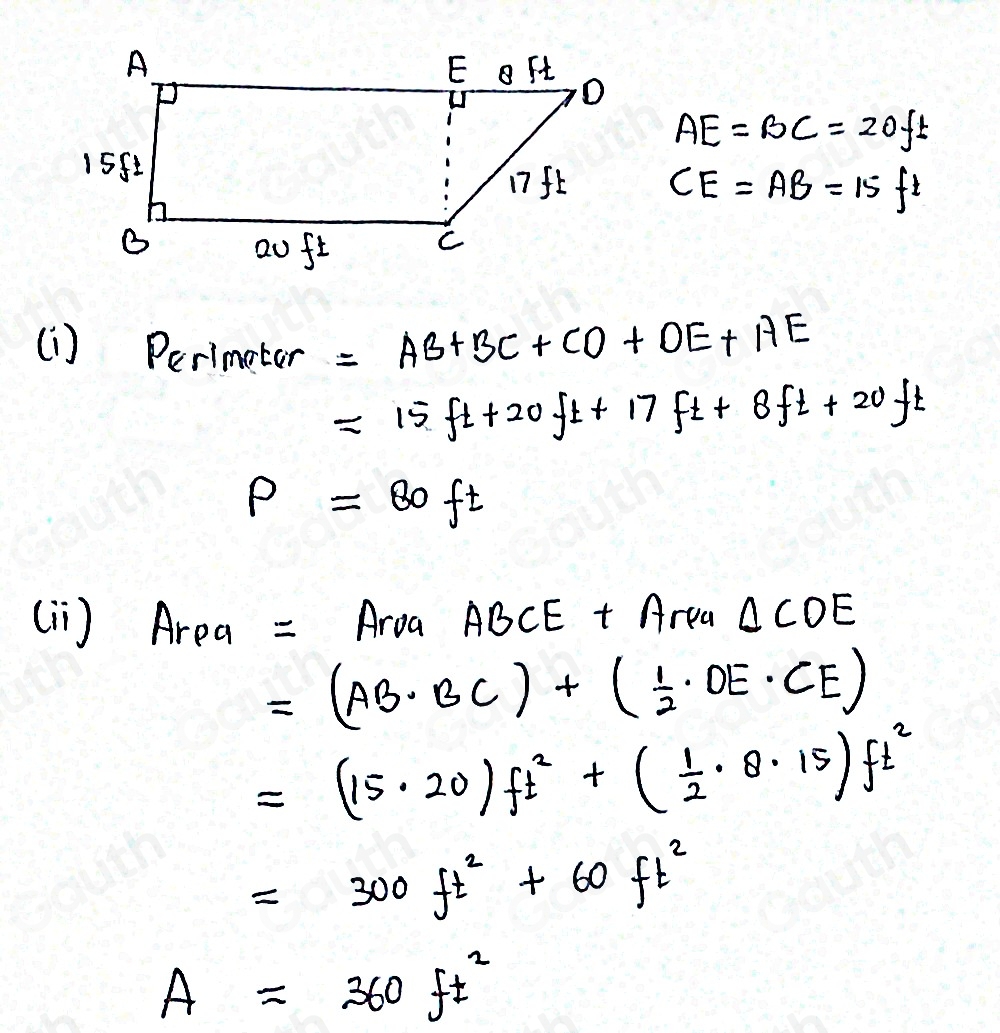 A E 8 ft D
15ft 17 ft
B 20 ft C
AE = BC = 20ft
CE = AB = 15 ft
(i) Perimeter = AB+BC + CD + DE + AE
= 15 ft + 20 ft + 17 ft + 8ft + 20 ft
P = 80 ft
(ii) Area = Area ABCE + Area Δ CDE
= (AB · BC) + (1/2 · DE · CE)
= (15 · 20) ft² + (1/2 · 8 · 15) ft²
= 300 ft² + 60 ft²
A = 360 ft²
Gauth